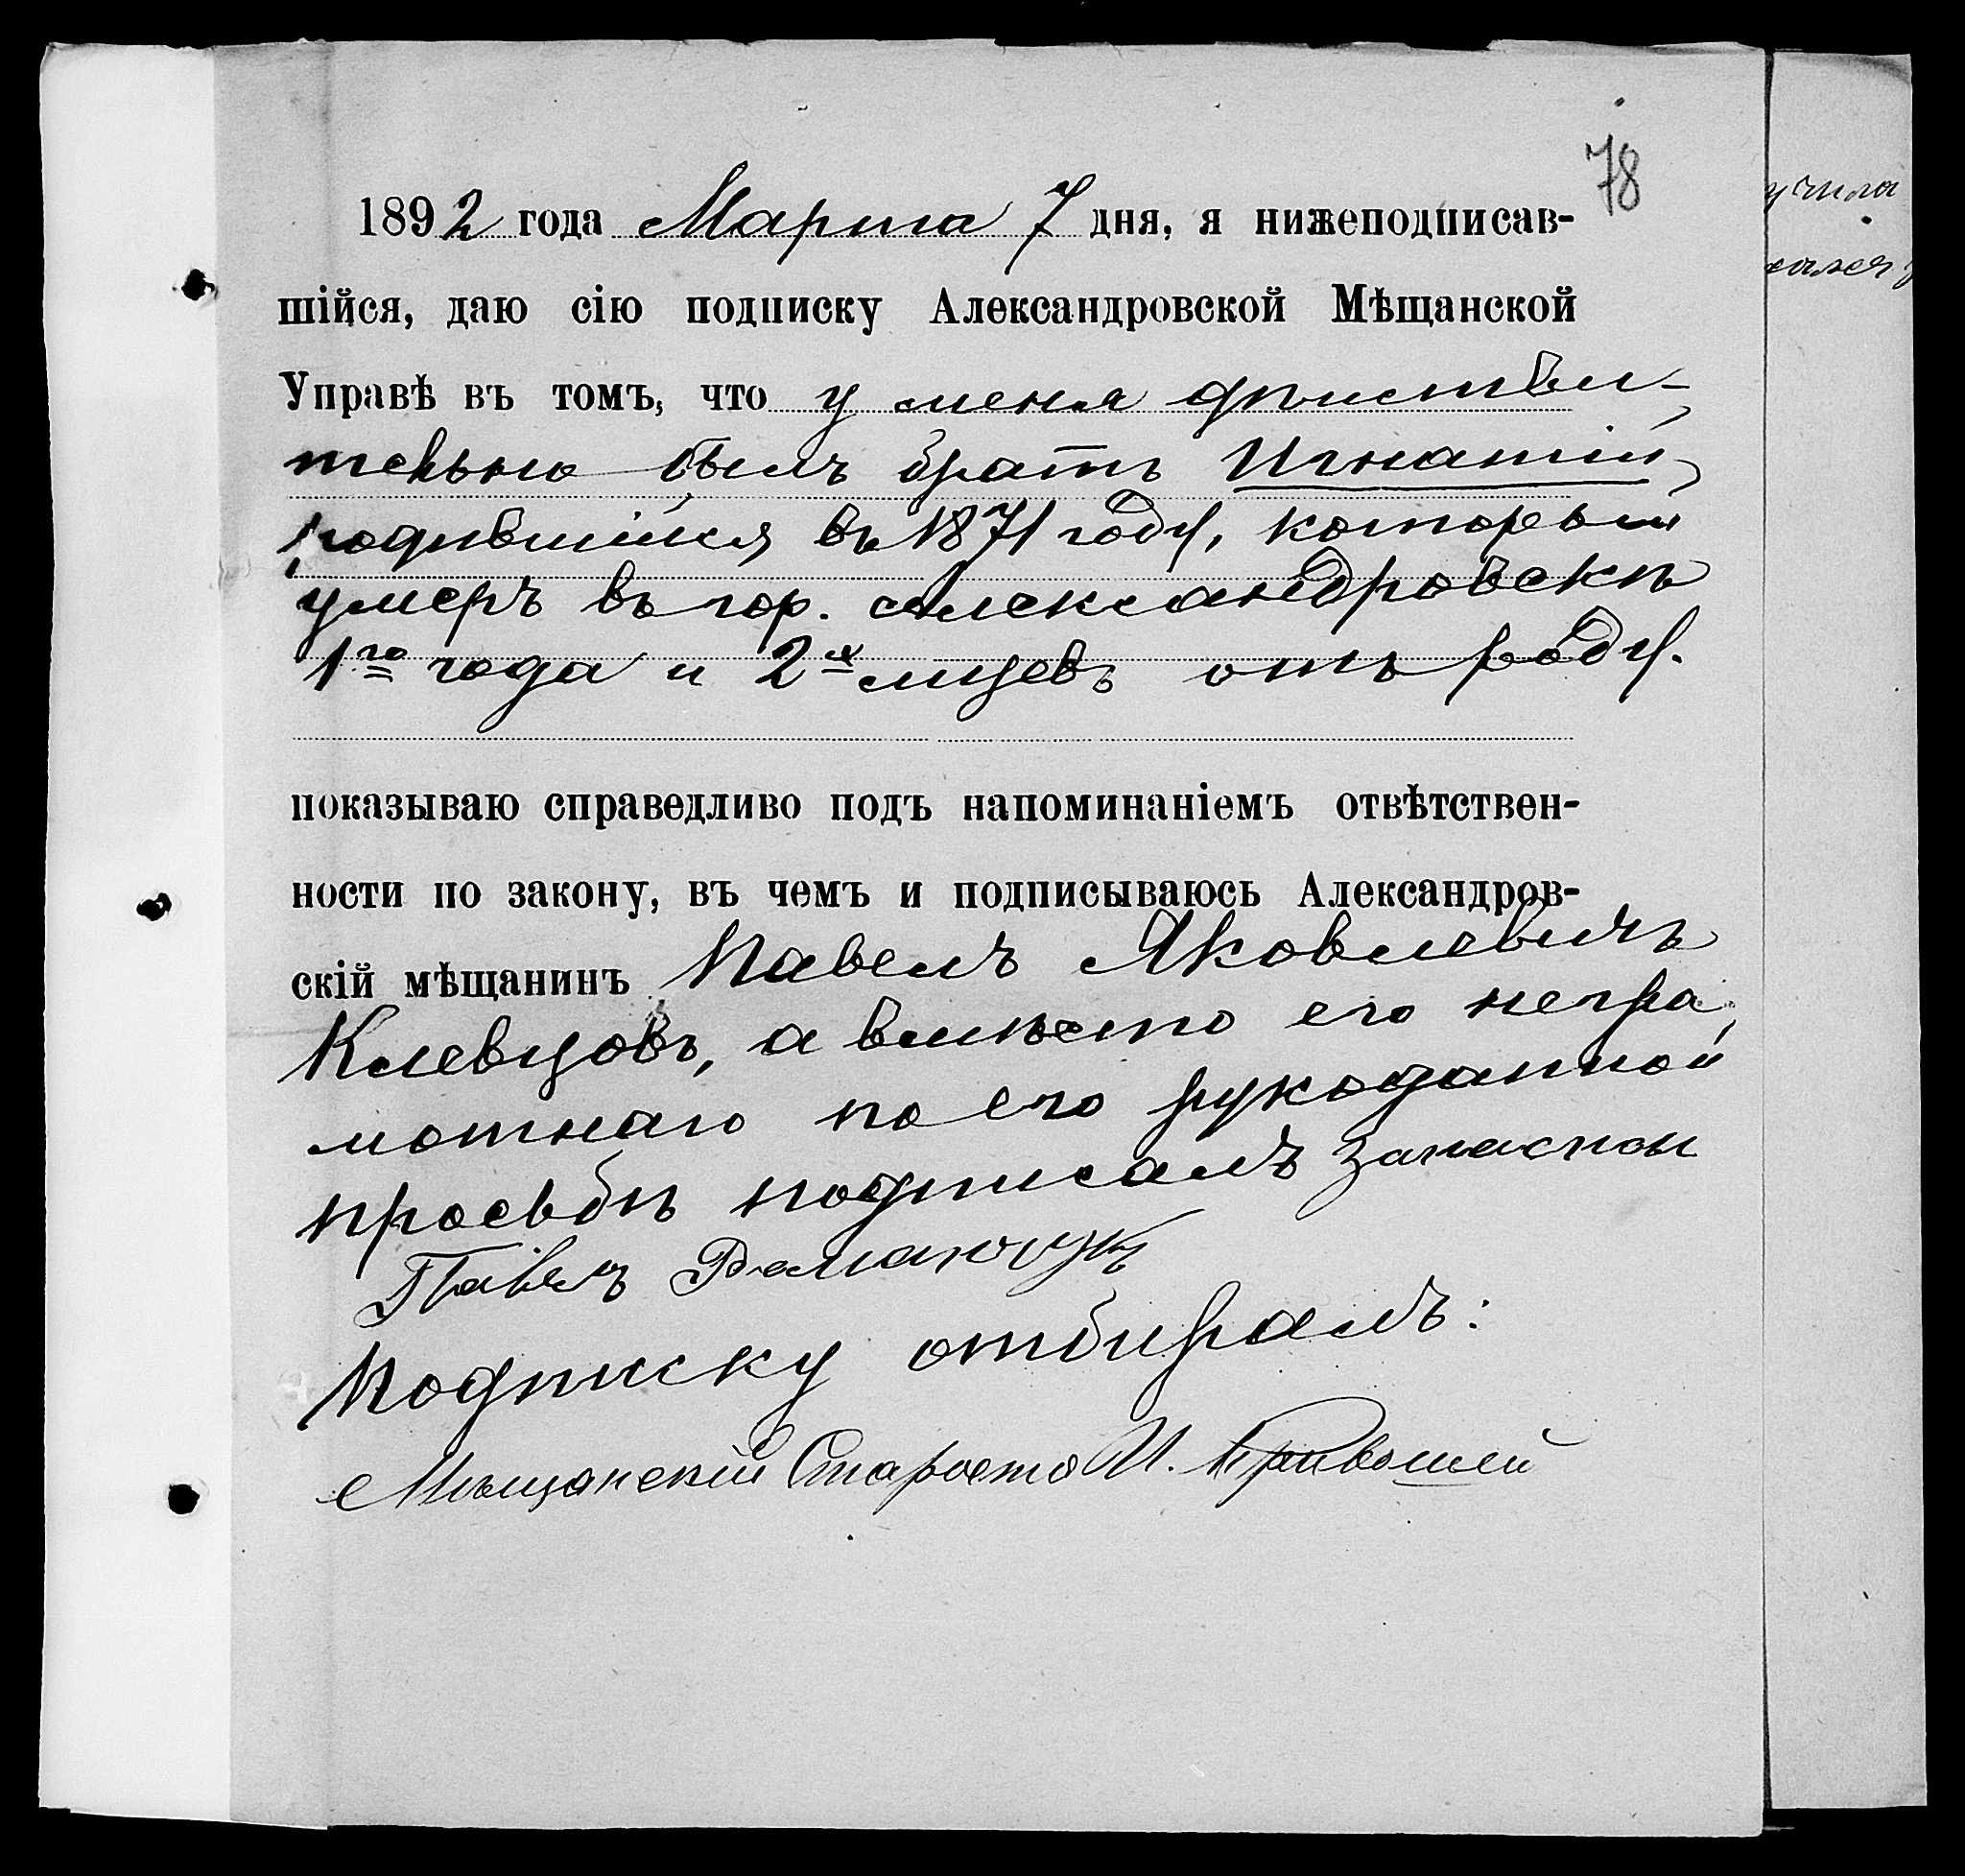 78
1892 года Марта 7 дня, я нижеподписав-
шійся, даю сію подписку Александровской Мѣщанской
Управѣ въ томъ, что у меня дѣйстви-
тельно былъ братъ Игнатій,
родившійся въ 1871 году, который
умеръ въ гор. Александровскѣ
1го года и 2х мцевъ отъ роду.
показываю справедливо подъ напоминаніемъ отвѣтствен-
ности по закону, въ чемъ и подписываюсь Александров-
скій мѣщанинъ Павелъ Яковлевичъ
Клевцовъ, а вмѣсто его негра
мотнаго по его рукоданной
просьбѣ подписалъ запасной
Павелъ Романюкъ
Подписку отбиралъ:
Мѣщанскій Староста И.